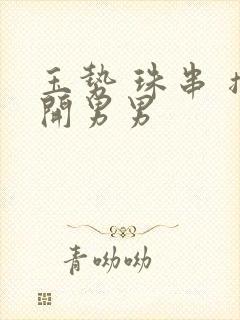 玉势 珠串 扌
開男男
青呦呦